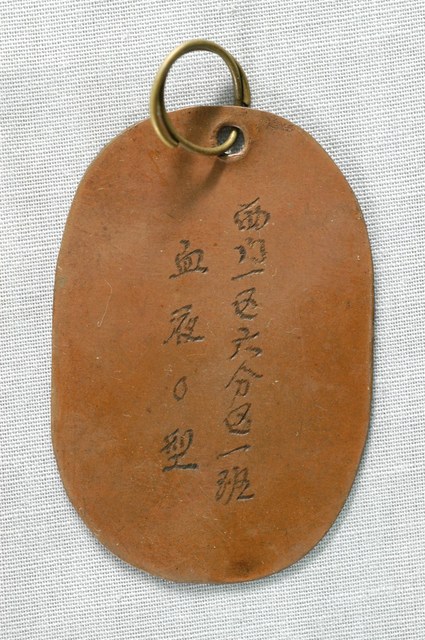 西一区六分区一班
血液O型